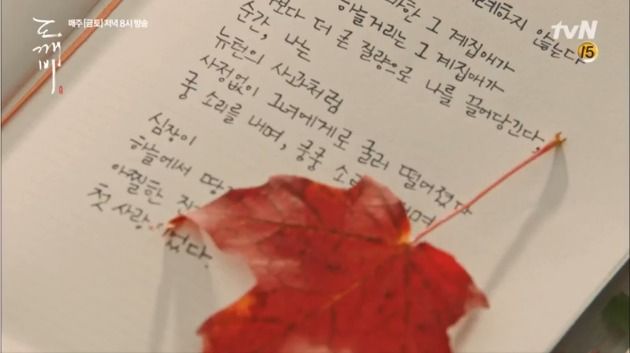 도깨비
매주 [금토] 저녁 8시 방송
tvN
15
하지 않는다
그 계집애가
하늘거리는 그 계집애가
더 큰 질량으로 나를 끌어당긴다.
순간, 나는
뉴턴의 사과처럼
사정없이 그녀에게로 굴러 떨어졌다
쿵 소리를 내며, 쿵쿵 소리 내며
심장이
하늘에서 땅
아찔한
첫사랑 었다.